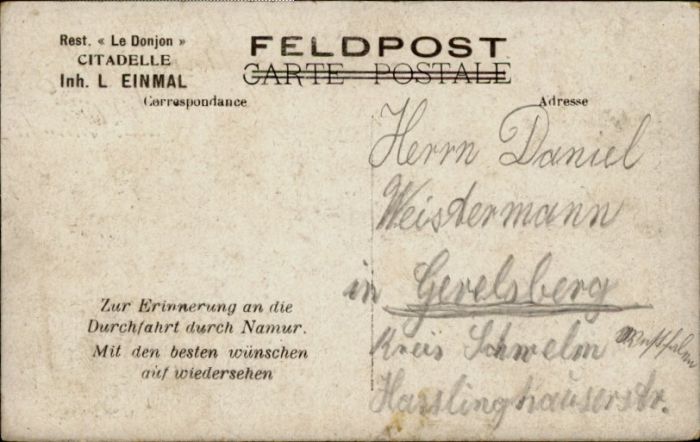 Rest. « Le Donjon »
CITADELLE
Inh. L EINMAL
FELDPOST
CARTE POSTALE
Correspondance
Adresse
Herrn Daniel
Weistermann
in Gevelsberg
Kreis Schwelm Westfalen
Hasslinghauserstr.
Zur Erinnerung an die
Durchfahrt durch Namur.
Mit den besten wünschen
auf wiedersehen